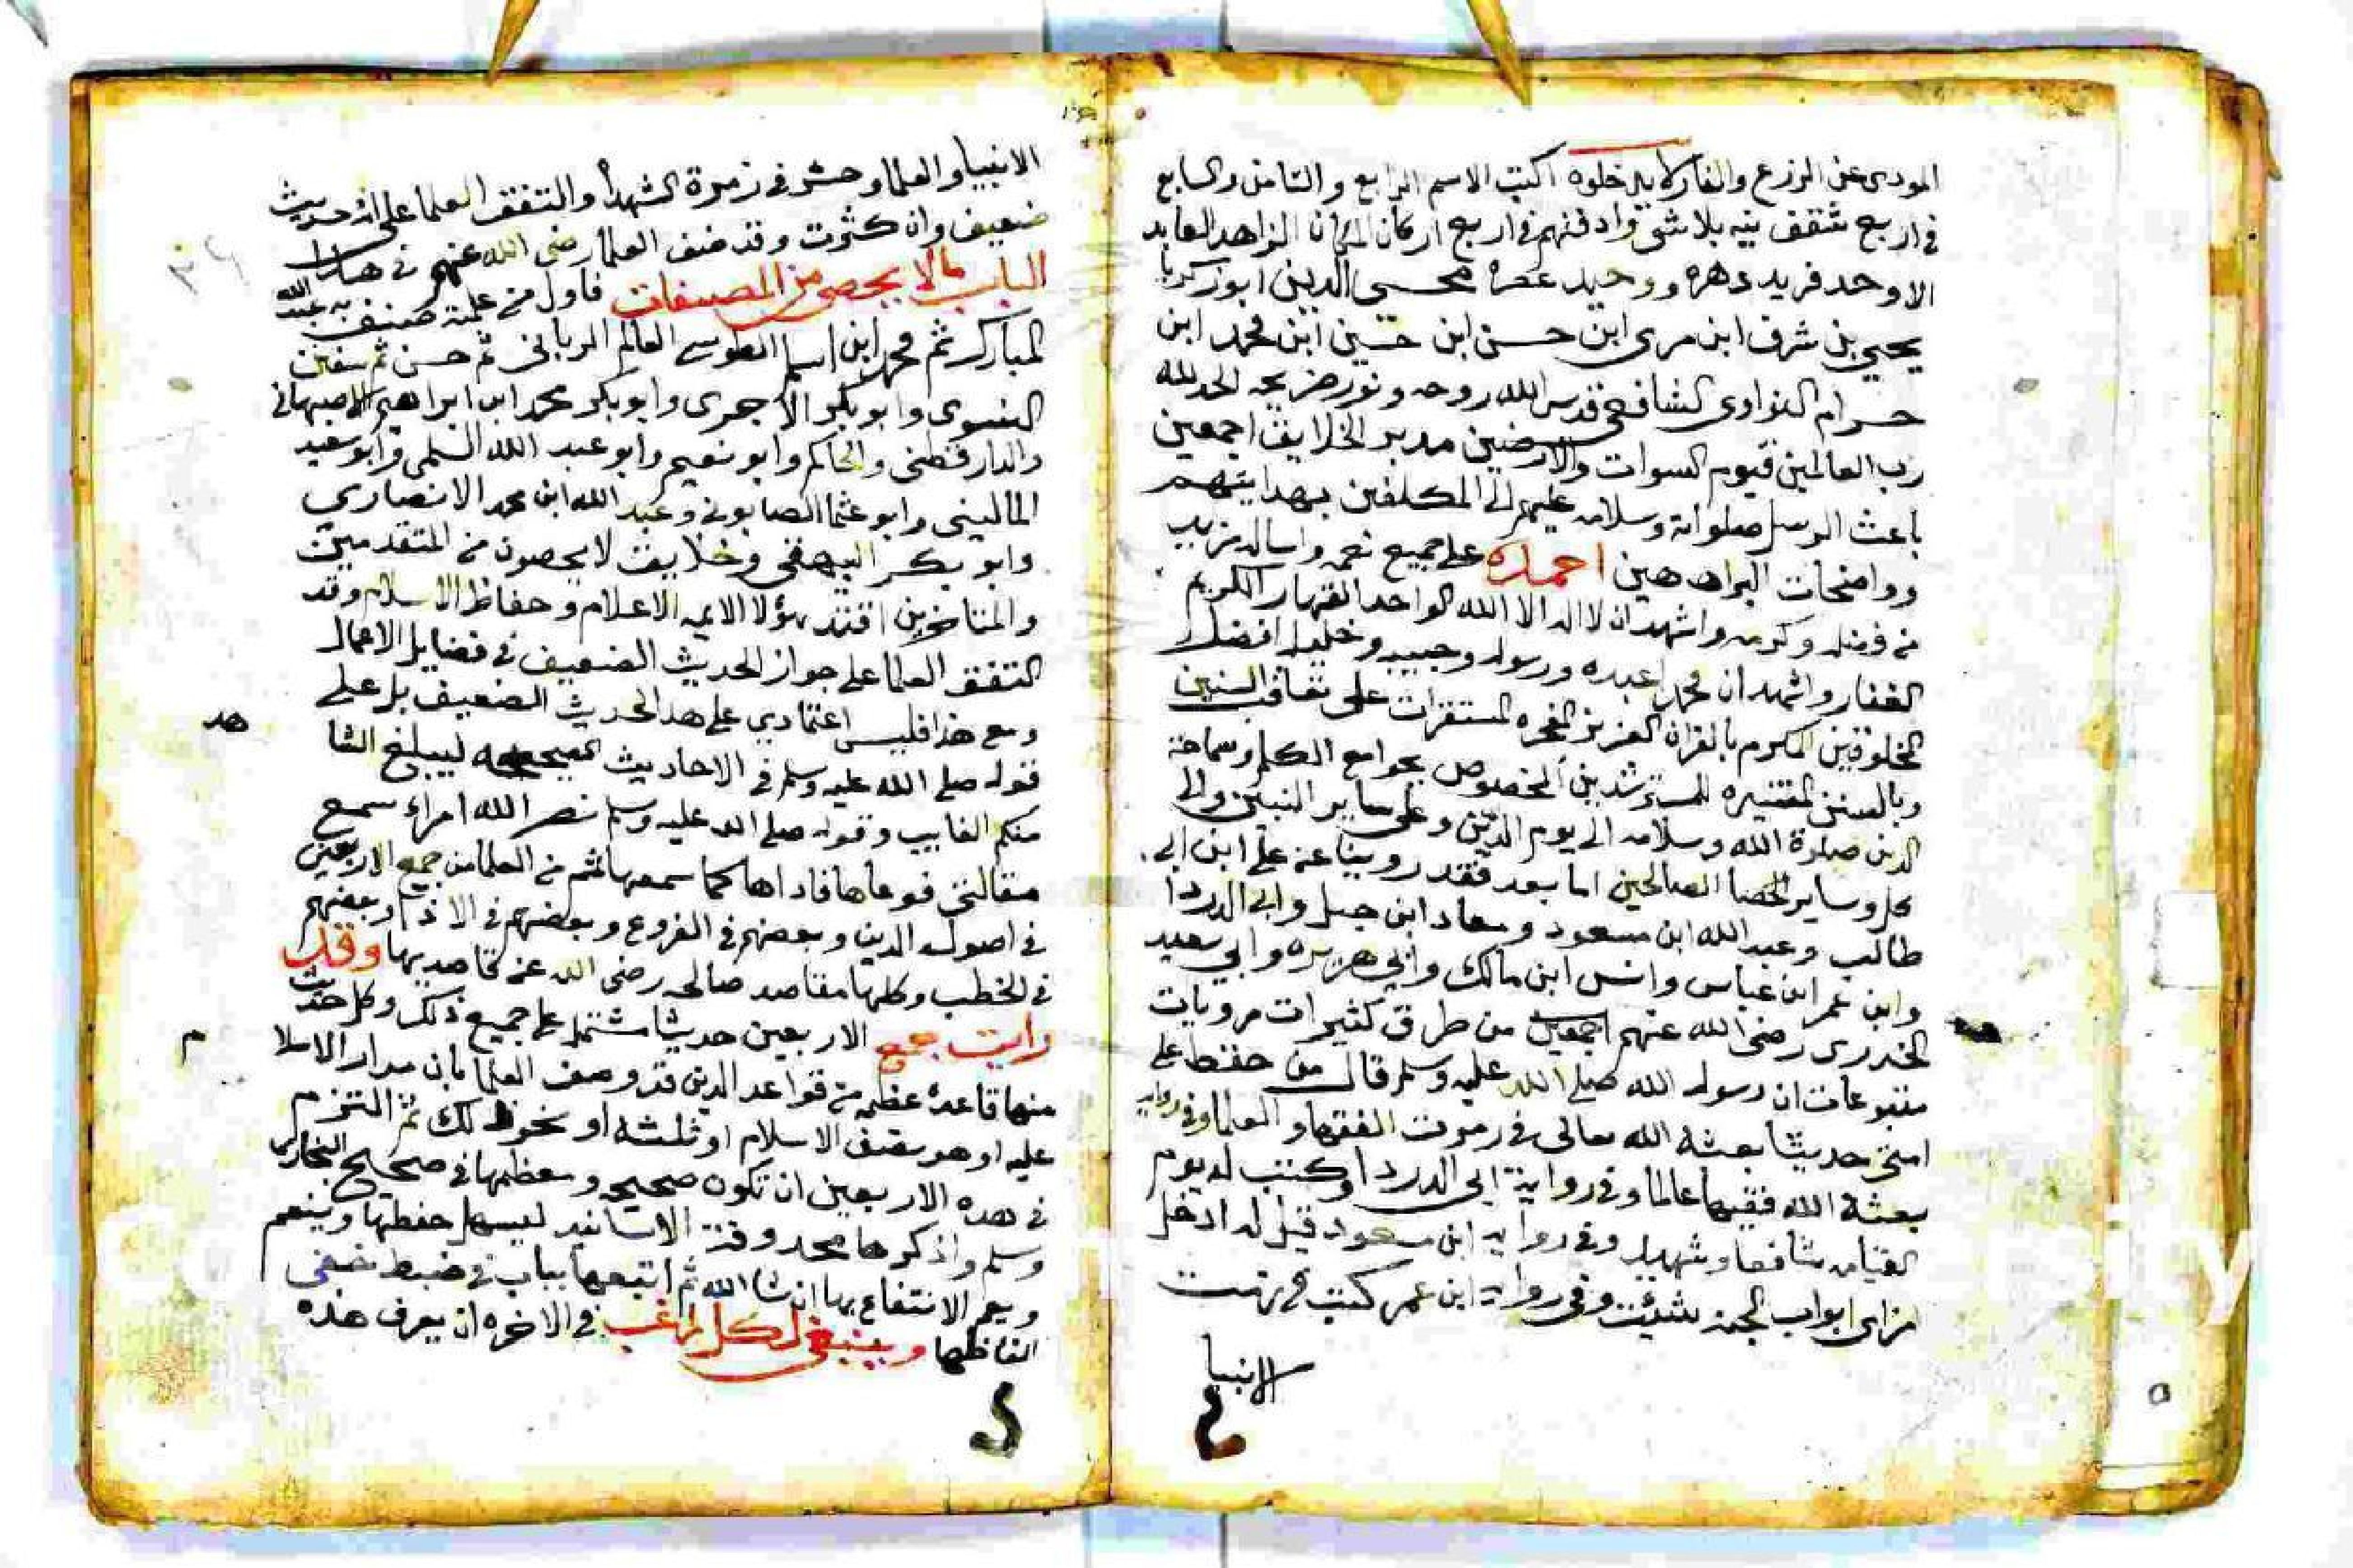 المودى عن الزرع والفار كا يد خلوه اكتب الاسم الرابع والثامن والسابع
في اربع شقف نيه بلا شى وادفنهم في اربع اركان المكان الزاهد العابد
الاوحد فريد دهره ووحيد عصره محيى الدين ابو زكريا
يحيي بن شرف ابن مرى ابن حسن ابن حسين ابن محمد ابن
حرام النواوى الشافعي قدس الله روحه ونور ضريحه الحمد لله
رب العالمين قيوم السموات والارضين مدبر الخلايق اجمعين
باعث الرسل صلواته وسلامه عليهم الى المكلفين بهدايتهم
وواضحات البراهين احمده على جميع نعمه واساله مزيد
من فضله وكرمه واشهد ان لا اله الا الله الواحد القهار الكريم
الغفار واشهد ان محمدا عبده ورسوله وحبيبه وخليله افضل
المخلوقين المكرم بالقران العزيز المعجزه المستمرات على تعاقب السنين
وبالسنن المستنيره للمسترشدين المخصوص بجوامع الكلم وسماحة
الدين صلوة الله وسلامه الى يوم الدين وعلى ساير النبيين والى
كل وساير الصالحين اما بعد فقد روينا عن علي ابن ابي
طالب وعبد الله ابن مسعود ومعاد ابن جبل وابي الدردا
وابن عمر ابن عباس وانس ابن مالك وابي هريره وابي سعيد
الخدرى رضى الله عنهم اجمعين من طرق كثيرات مرويات
متنوعات ان رسول الله صلى الله عليه وسلم قال من حفظ على
امتى حديثا بعثه الله تعالى في زمرت الفقها والعلما وفي روايه
بعثه الله فقيها عالما وفي رواية ابي الدردا وكنت له يوم
القيامه شافعا وشهيدا وفي روايه ابن مسعود قيل له ادخل
من اى ابواب الجنه شئت وفي روايه ابن عمر كتب في زمرت
الانبيا
الانبيا والعلما وحشر في زمرة الشهدأ والتفق العلما على انه حديث
ضعيف وان كثرت وقد صنف العلما رضى الله عنهم في هذا
الباب مالا يحصى من المصنفات فاول من علمته صنف به عبد الله
المبارك ثم محمد ابن اسلم الطوسي العالم الرباني ثم حسن ثم سفين
النسوى وابو بكر الاجرى وابو بكر محمد ابن ابراهيم الاصبهاني
والدارقطني والحاكم وابو نعيم وابو عبد الله السلمى وابو سعيد
الماليني وابو عثما الصابونى وعبد الله ابن محمد الانصاري
وابو بكر البيهقى وخلايق لا يحصون من المتقدمين
والمتاخرين اقتد بهؤلا الايمه الاعلام وحفاظ الاسلام وقد
التفق العلما على جواز الحديث الضعيف في فضايل الاعمال
ومع هذا فليس اعتمادي على هد الحديث الضعيف بل على
هد
قوله صلى الله عليه وسلم في الاحاديث الصحيحه ليبلغ الشا
منكم الغايب وقوله صلى الله عليه وسلم نصر الله امراء سمع
مقالتى فوعاها فاداها كما سمعها ثم من العلما من جمع الاربعين
في اصول الدين وبعضهم في الفروع وبعضهم في الا وبعضهم
في الخطب وكلها مقاصد صالحه رضى الله عن قاصديها وقد
رايت جمع الاربعين حديثا مشتمله على جميع ذلك وكل حديث
م
منها قاعدة عظيمه من قواعد الدين قد وصف العلما بان مدار الاسلا
عليه او هو نصف الاسلام او ثلثه او نحو ذلك ثم التزم
في هده الاربعين ان تكون صحيحه ومعظمها في صحيح البخارى
وسلم واذكرها محدوفة الاسانيد ليسهل حفظها وينعم
ويعم الانتفاع بها ان شا الله ثم اتبعها بباب في ضبط خفى
الفاظها وينبغى لكل راغب في الاخره ان يعرف هذه